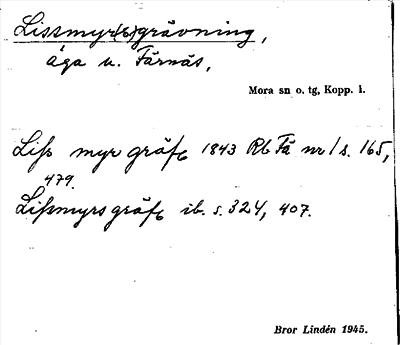 Lissmyr(s)grävning,
äga u. Färnäs,
Mora sn o. tg, Kopp. l.
Liss myr gräf 1843 Rb Fä nr 1 s. 165,
479.
Lissmyrs gräf ib. s. 324, 407.
Bror Lindén 1945.